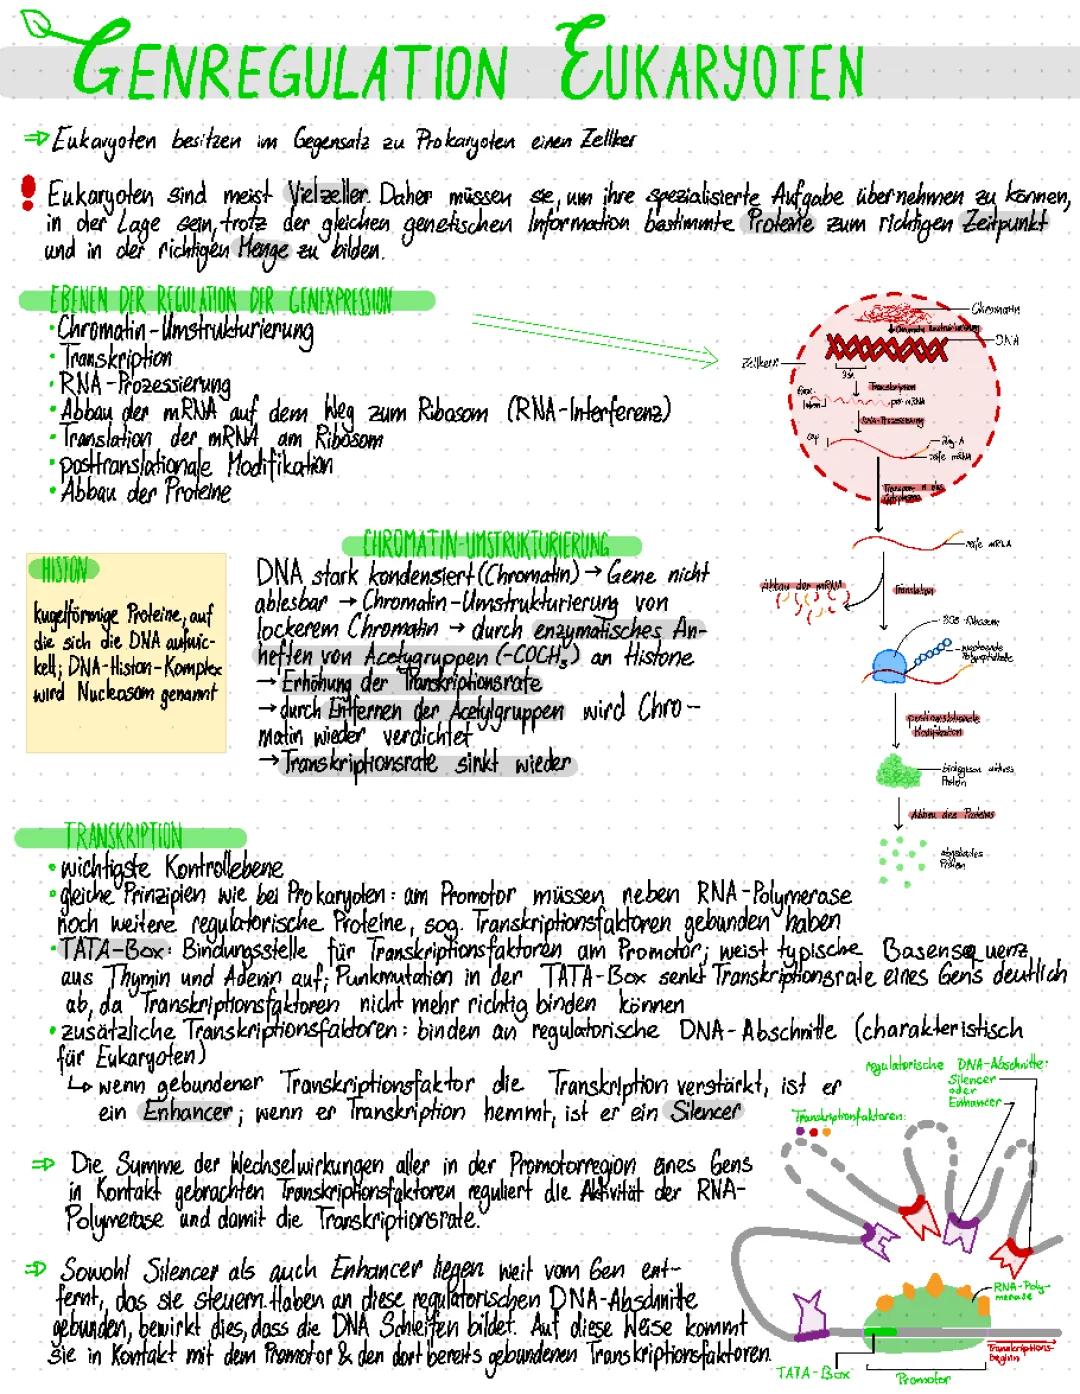 GENREGULATION EUKARYOTEN
⇒ Eukaryoten besitzen im Gegensatz zu Prokaryoten einen Zellker
! Eukaryoten sind meist Vielzeller. Daher müssen sie, um ihre spezialisierte Aufgabe übernehmen zu können,
in der Lage sein, trotz der gleichen genetischen Information bestimmte Proteine zum richtigen Zeitpunkt
und in der richtigen Menge zu bilden.
EBENEN DER REGULATION DER GENEXPRESSION
• Chromatin-Umstrukturierung
• Transkription
• RNA-Prozessierung
• Abbau der mRNA auf dem Weg zum Ribosom (RNA-Interferenz)
• Translation der mRNA am Ribosom
• posttranslationale Modifikation
• Abbau der Proteine
Chromatin
DNA
Zellkern
Transkription
prä-mRNA
RNA-Prozessierung
Cap
Poly-A
reife mRNA
reife mRNA
Abbau der mRNA
Translation
Abbau des Proteins
HISTON
kugelförmige Proteine, auf
die sich die DNA aufwic-
kelt; DNA-Histon-Komplex
wird Nucleosom genannt
CHROMATIN-UMSTRUKTURIERUNG
DNA stark kondensiert (Chromatin) → Gene nicht
ablesbar → Chromatin-Umstrukturierung von
lockerem Chromatin → durch enzymatisches An-
heften von Acetygruppen (-COCH₃) an Histone
→ Erhöhung der Transkriptionsrate
→ durch Entfernen der Acetylgruppen wird Chro-
matin wieder verdichtet
→ Transkriptionsrate sinkt wieder
TRANSKRIPTION
• wichtigste Kontrollebene
• gleiche Prinzipien wie bei Prokaryoten: am Promotor müssen neben RNA-Polymerase
noch weitere regulatorische Proteine, sog. Transkriptionsfaktoren gebunden haben
• TATA-Box: Bindungsstelle für Transkriptionsfaktoren am Promotor; weist typische Basensequenz
aus Thymin und Adenin auf; Punkmutation in der TATA-Box senkt Transkriptionsrate eines Gens deutlich
ab, da Transkriptionsfaktoren nicht mehr richtig binden können
• zusätzliche Transkriptionsfaktoren: binden an regulatorische DNA-Abschnitte (charakteristisch
für Eukaryoten)
↳ wenn gebundener Transkriptionsfaktor die Transkription verstärkt, ist er
ein Enhancer; wenn er Transkription hemmt, ist er ein Silencer
⇒ Die Summe der Wechselwirkungen aller in der Promotorregion eines Gens
in Kontakt gebrachten Transkriptionsfaktoren reguliert die Aktivität der RNA-
Polymerase und damit die Transkriptionsrate.
⇒ Sowohl Silencer als auch Enhancer liegen weit vom Gen ent-
fernt, das sie steuern. Haben an diese regulatorischen DNA-Abschnitte
gebunden, bewirkt dies, dass die DNA Schleifen bildet. Auf diese Weise kommt
sie in Kontakt mit dem Promotor & den dort bereits gebundenen Transkriptionsfaktoren.
regulatorische DNA-Abschnitte:
Silencer
oder
Enhancer
Transkriptionfaktoren:
RNA-Poly-
merase
Transkriptions-
beginn
TATA-Box
Promotor